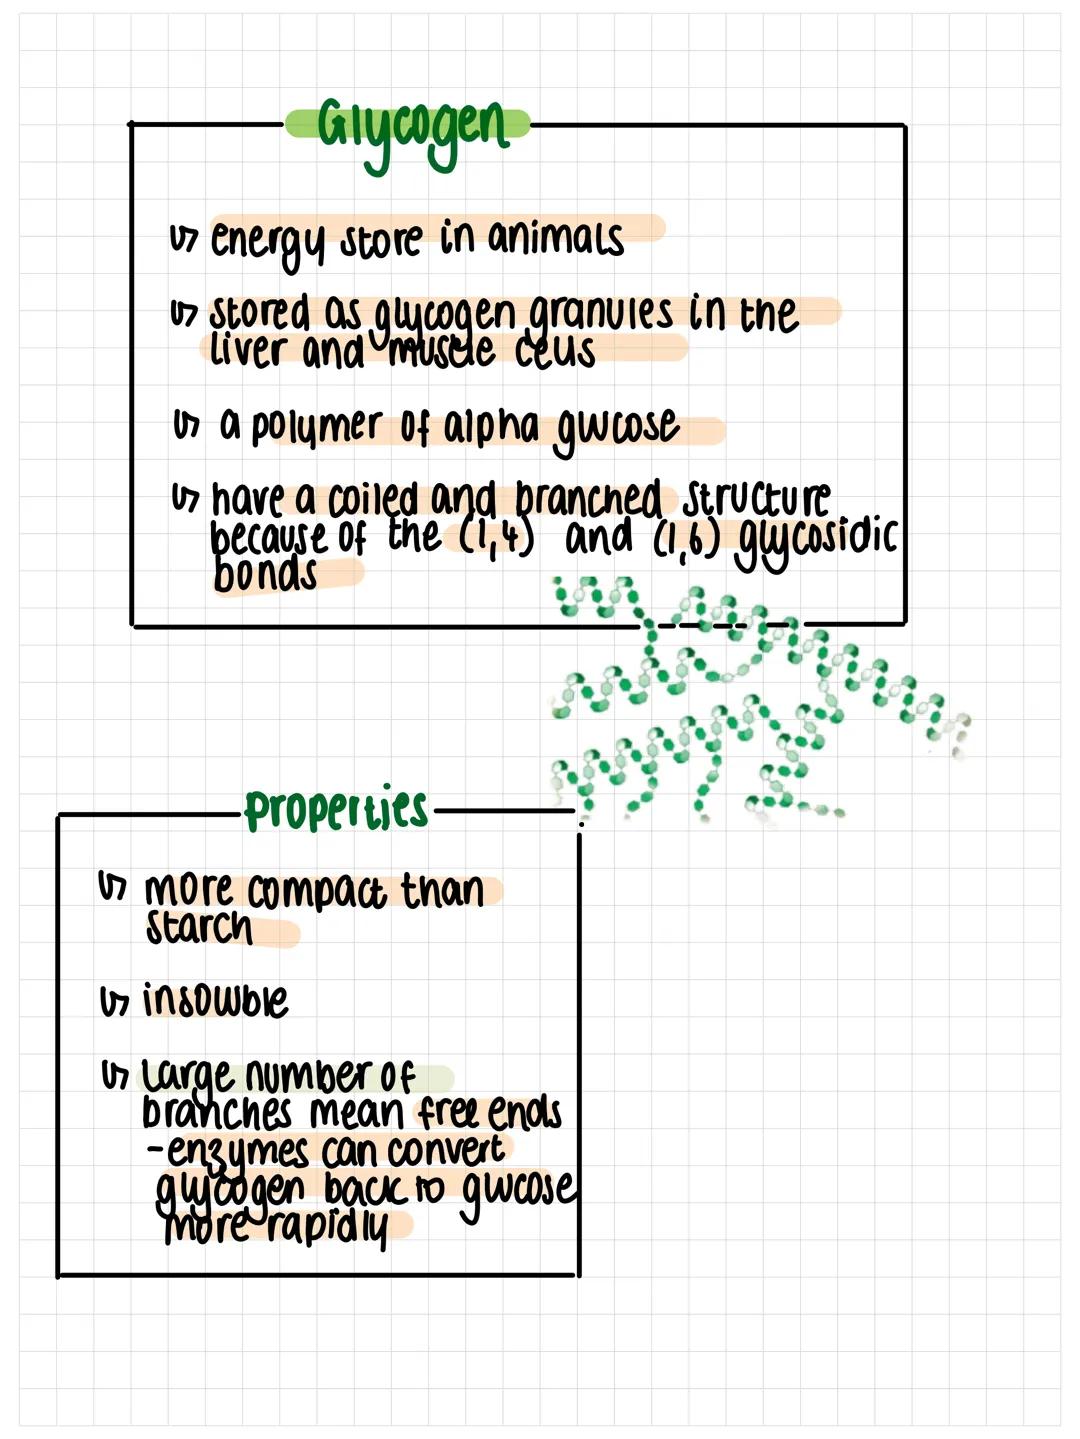 Glycogen
↳ energy store in animals
↳ stored as glycogen granules in the
liver and muscle cells
↳ a polymer of alpha glucose
↳ have a coiled and branched structure
because of the (1,4) and (1,6) glycosidic
bonds
properties
↳ more compact than
starch
↳ insoluble
↳ large number of
branches mean free ends
- enzymes can convert
glycogen back to glucose
more rapidly